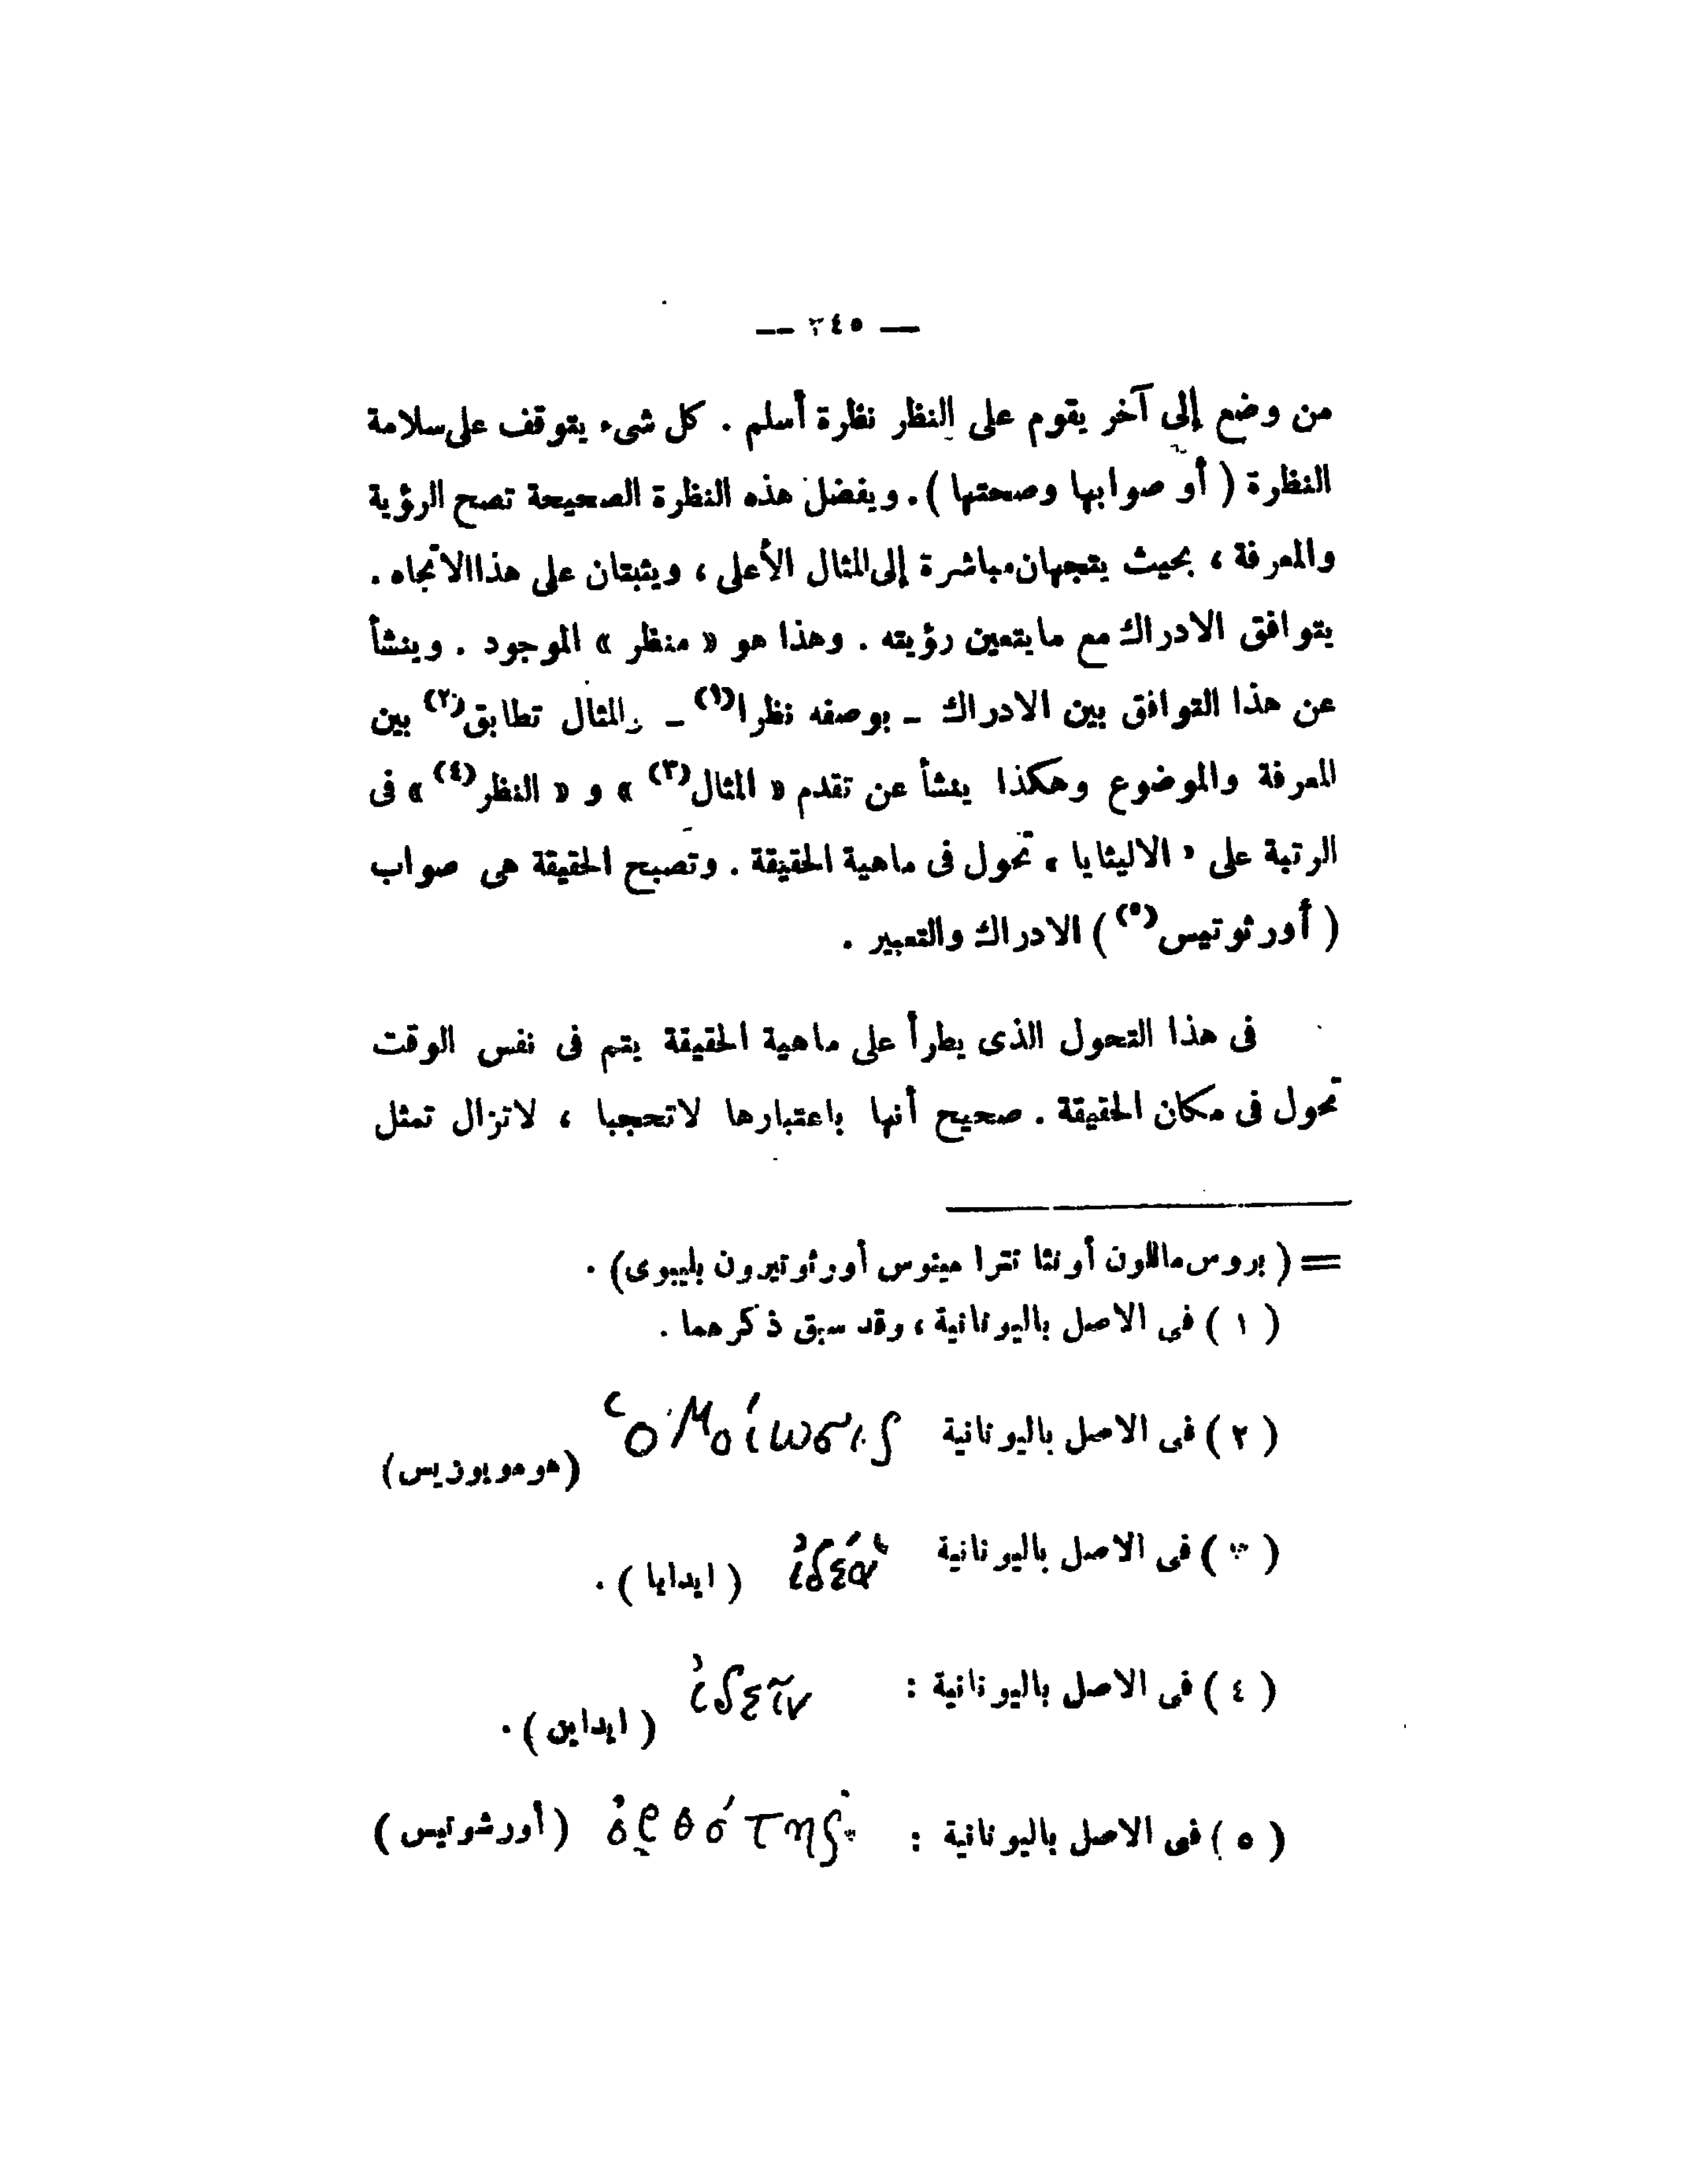 — ٣٤٥ —
من وضع إلى آخر يقوم على النظر نظرة أسلم . كل شىء يتوقف على سلامة
النظرة ( أو صوابها وصحتها ) . وبفضل هذه النظرة الصحيحة تصح الرؤية
والمعرفة ، بحيث يتجهان مباشرة إلى المثال الأعلى ، ويثبتان على هذا الاتجاه .
يتوافق الادراك مع ما يتعين رؤيته . وهذا هو « منظر » الموجود . وينشأ
عن هذا التوافق بين الادراك – بوصفه نظرا(١) – والمثال تطابق(٢) بين
المعرفة والموضوع وهكذا ينشأ عن تقدم « المثال(٣) » و « النظر(٤) » فى
الرتبة على « الاليثايا » تحول فى ماهية الحقيقة . وتصبح الحقيقة هى صواب
( أورثوتيس(٥) ) الادراك والتعبير .
فى هذا التحول الذى يطرأ على ماهية الحقيقة يتم فى نفس الوقت
تحول فى مكان الحقيقة . صحيح أنها باعتبارها لاتحجبا ، لاتزال تمثل
= ( بروس ماللون أونثا تترا مينوس أورثوتيرون بليبوى) .
( ١ ) فى الاصل باليونانية ، وقد سبق ذكرهما .
( ٢ ) فى الاصل باليونانية ὁμοίωσις (هوموبوزيس)
( ٣ ) فى الاصل باليونانية ἰδέα ( ايدايا ) .
( ٤ ) فى الاصل باليونانية : ἰδεῖν ( ايداين ) .
( ٥ ) فى الاصل باليونانية : ὀρθότης ( أورشوتيس )